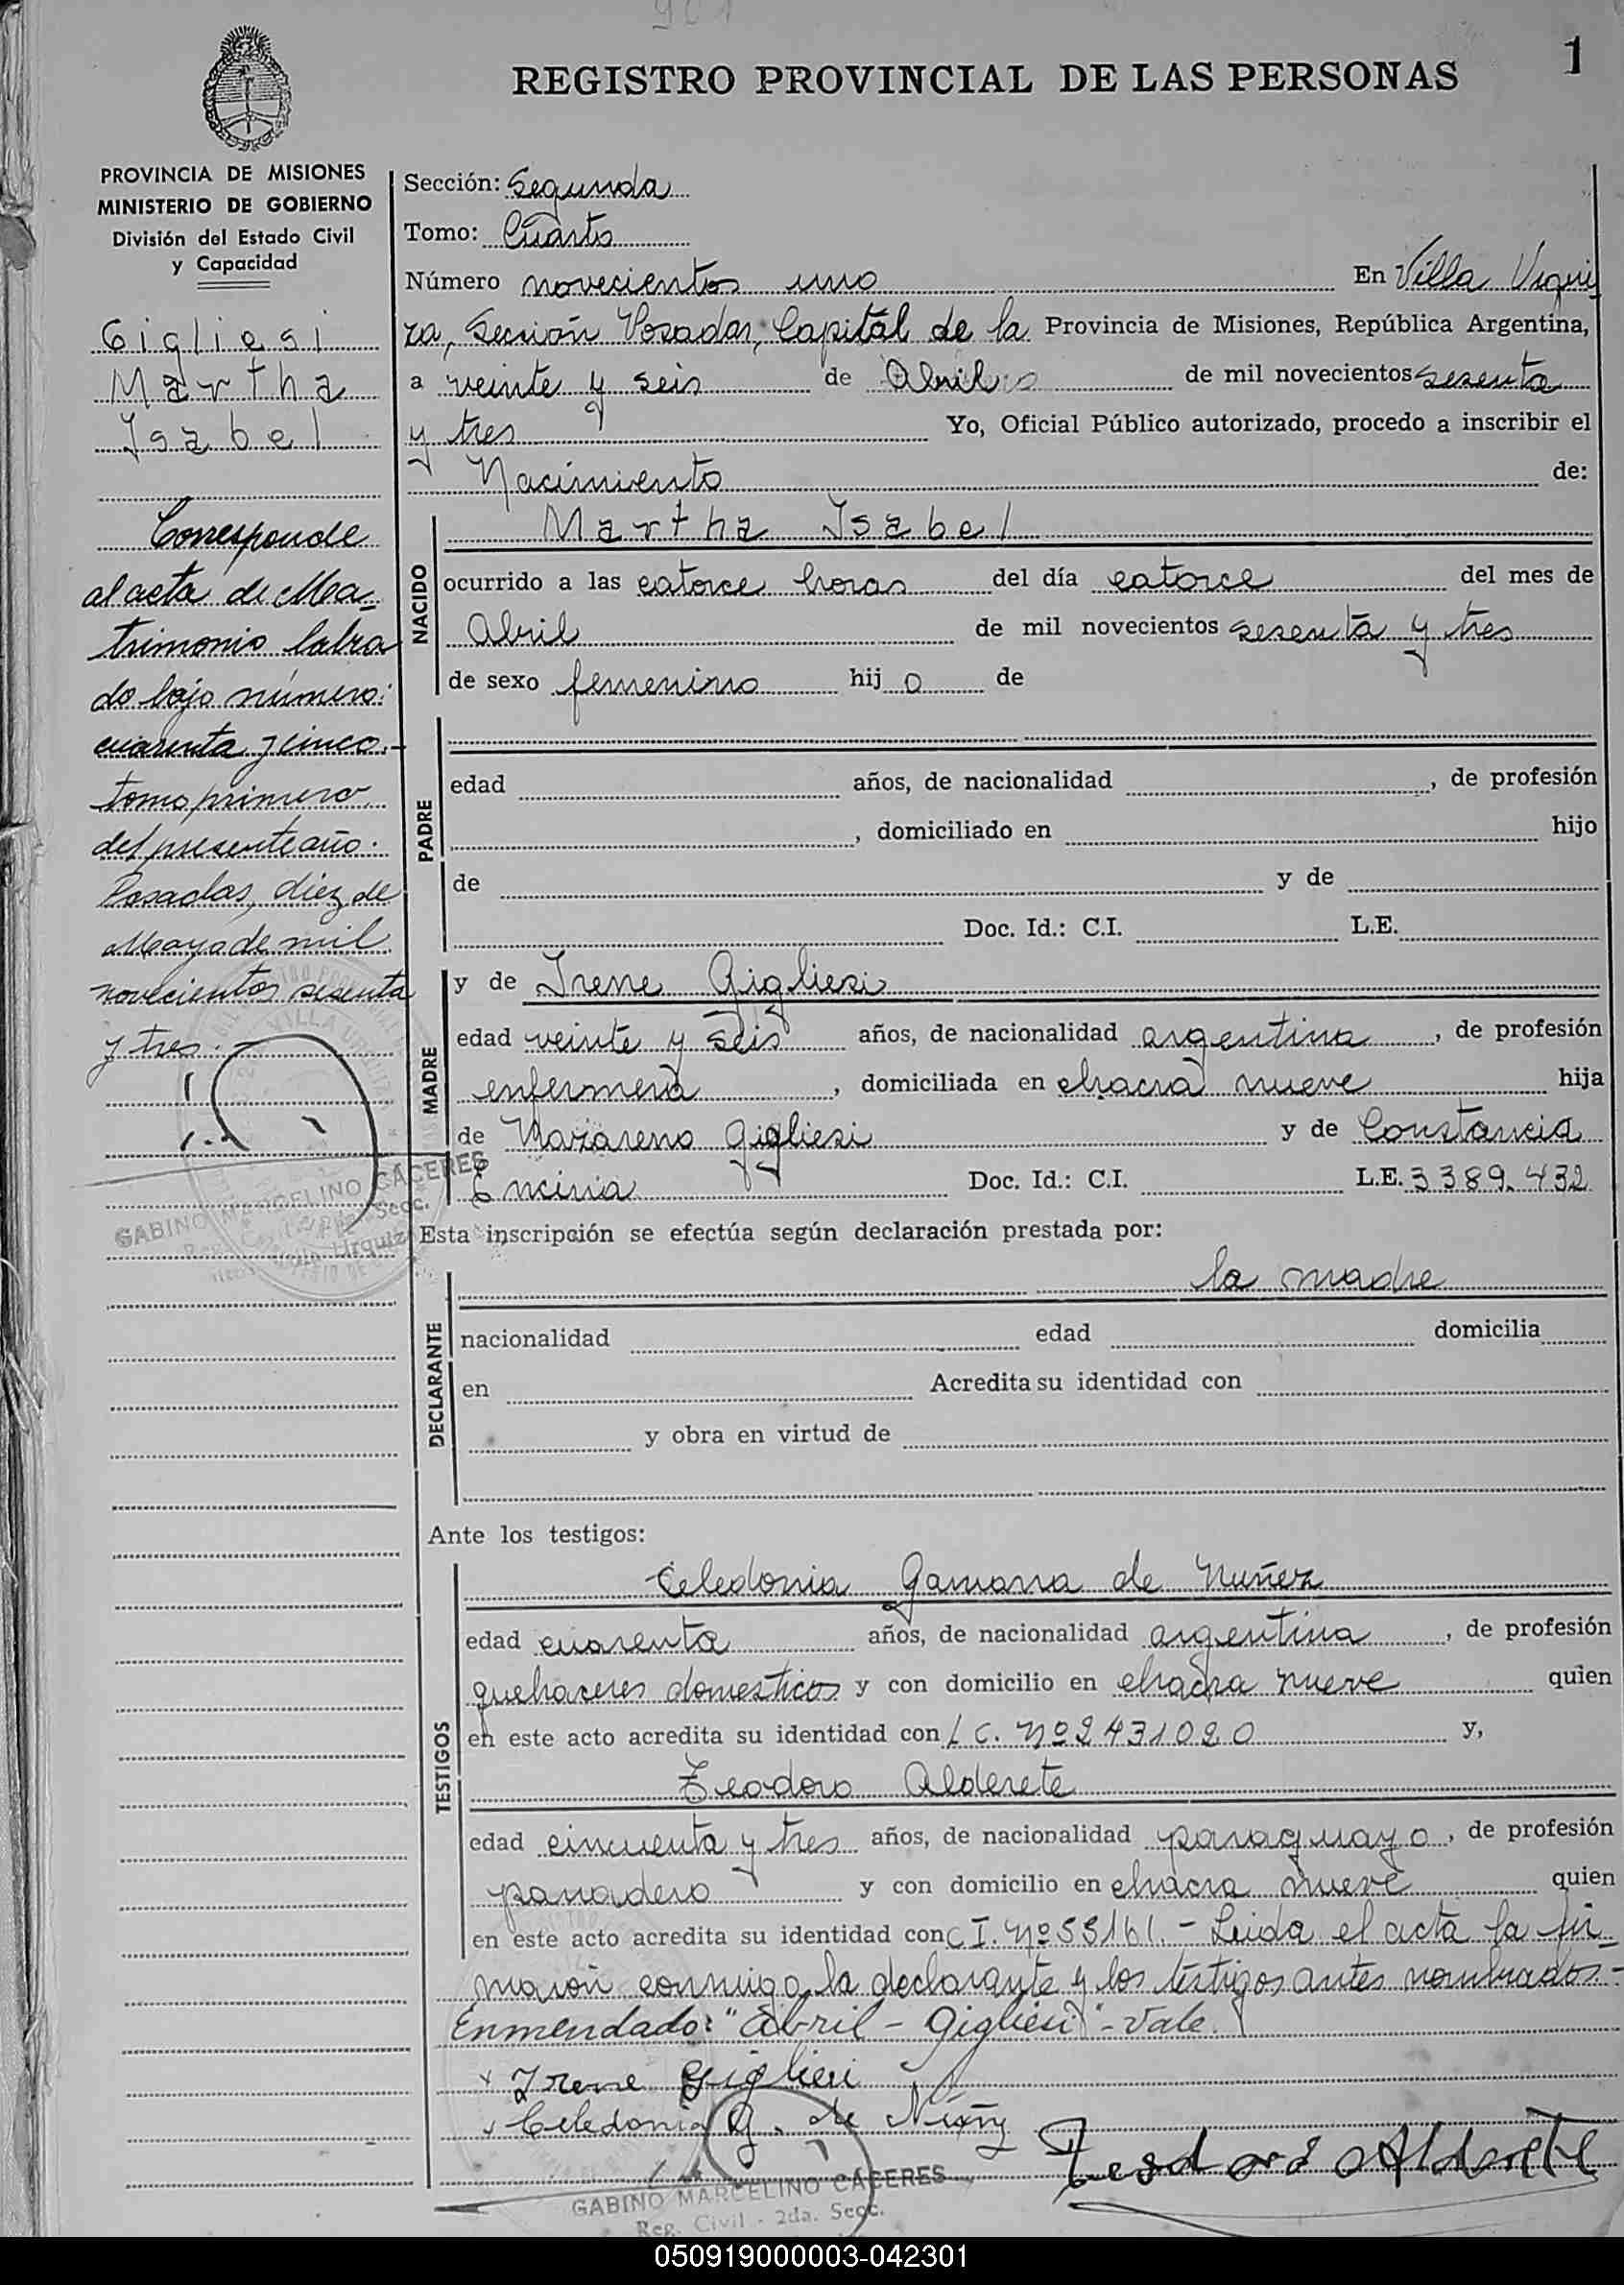 901
1
REGISTRO PROVINCIAL DE LAS PERSONAS
PROVINCIA DE MISIONES
MINISTERIO DE GOBIERNO
División del Estado Civil
y Capacidad
Gigliesi
Martha
Isabel
Corresponde
al acta de Ma-
trimonio labra
do bajo número:
cuarenta y cinco.-
tomo primero
del presente año.
Posadas, diez de
Mayo de mil
novecientos sesenta
y tres.-
GABINO MARCELINO CACERES
Sección: Segunda
Tomo: Cuarto
Número novecientos uno En Villa Urqui
za, Sección Posadas, Capital de la Provincia de Misiones, República Argentina,
a veinte y seis de Abril de mil novecientos sesenta
y tres Yo, Oficial Público autorizado, procedo a inscribir el
Nacimiento de:
NACIDO
Martha Isabel
ocurrido a las catorce horas del día catorce del mes de
Abril de mil novecientos sesenta y tres
de sexo femenino hij o de
PADRE
edad años, de nacionalidad , de profesión
, domiciliado en hijo
de y de
Doc. Id.: C.I. L.E.
MADRE
y de Irene Gigliesi
edad veinte y seis años, de nacionalidad argentina , de profesión
enfermera , domiciliada en chacra nueve hija
de Nazareno Gigliesi y de Constancia
Encina Doc. Id.: C.I. L.E. 3389.432
Esta inscripción se efectúa según declaración prestada por:
DECLARANTE
la madre
nacionalidad edad domicilia
en Acredita su identidad con
y obra en virtud de
Ante los testigos:
TESTIGOS
Celedonia Gamarra de Nuñez
edad cuarenta años, de nacionalidad argentina , de profesión
quehaceres domesticos y con domicilio en chacra nueve quien
en este acto acredita su identidad con L C. Nº 2431020 y,
Teodoro Alderete
edad cincuenta y tres años, de nacionalidad paraguayo , de profesión
panadero y con domicilio en chacra nueve quien
en este acto acredita su identidad con C I. Nº 53161.- Leida el acta la fir-
maron conmigo, la declarante y los testigos antes nombrados.-
Enmendado: "Abril - Gigliesi" - Vale.
x Irene Gigliesi
x Celedonia G. de Niñz
Teodoro Alderete
GABINO MARCELINO CACERES
Reg. Civil - 2da. Secc.
050919000003-042301